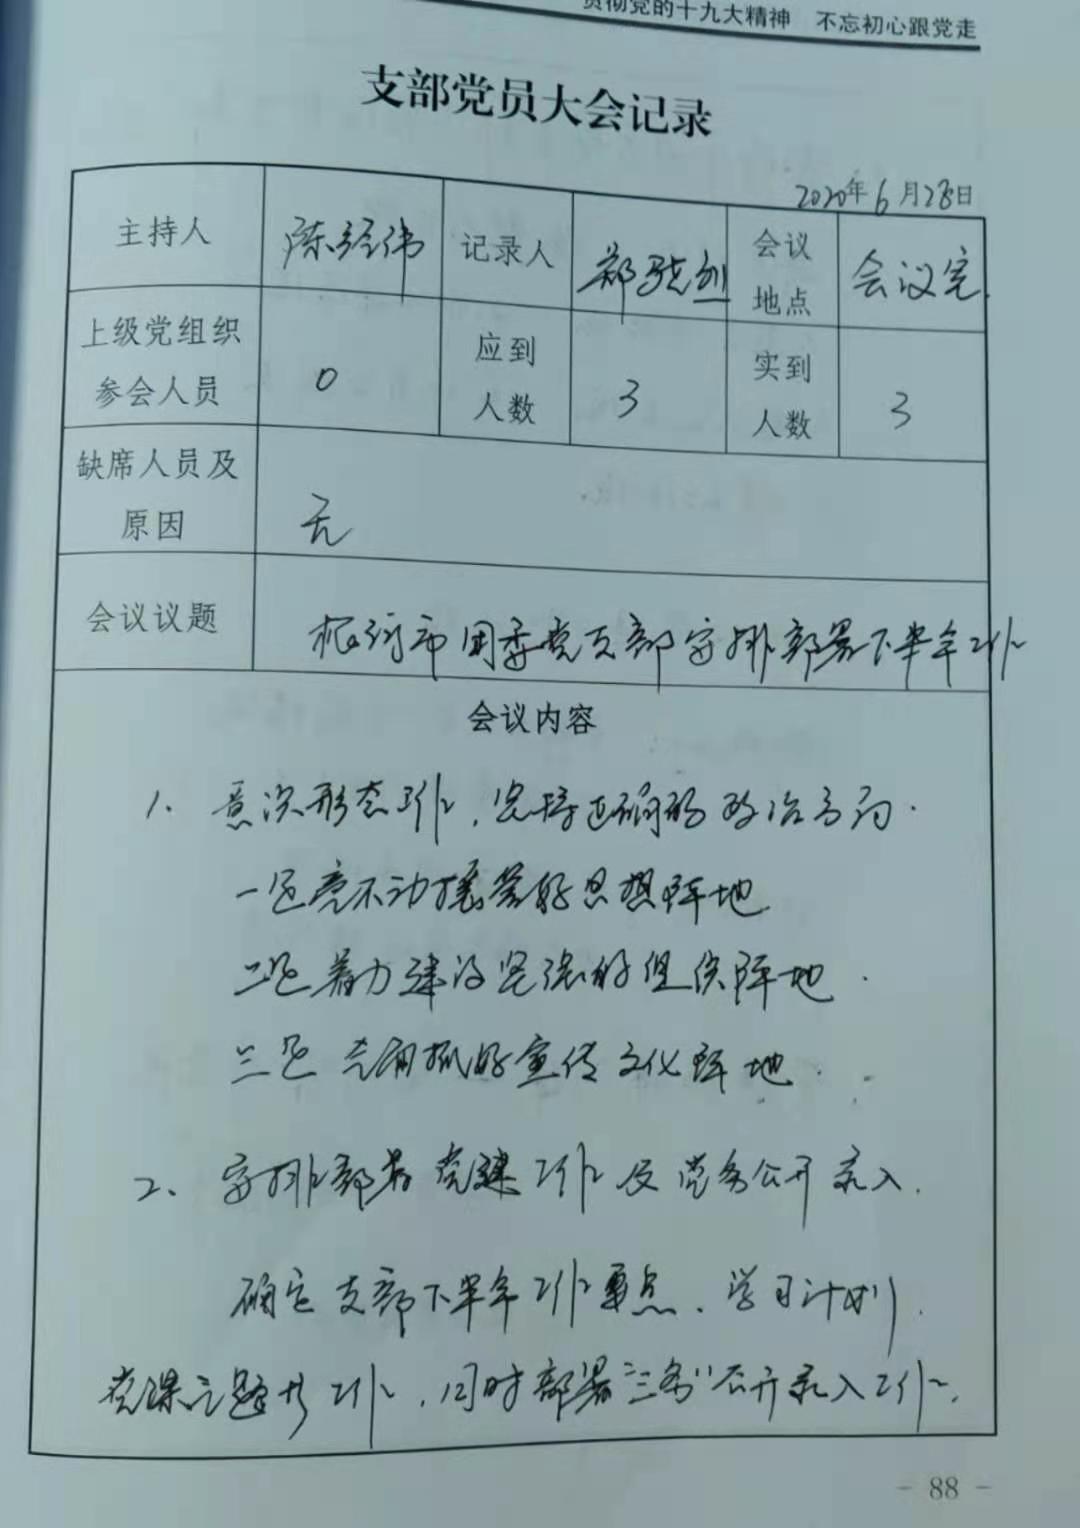 贯彻党的十九大精神 不忘初心跟党走
支部党员大会记录
2020年6月28日
主持人 陈经伟 记录人 郑骁烈 会议地点 会议室
上级党组织参会人员 0 应到人数 3 实到人数 3
缺席人员及原因 无
会议议题 根河市团委党支部安排部署下半年工作
会议内容
1、意识形态工作,坚持正确的政治方向.
一是毫不动摇管好思想阵地
二是着力建设坚强的组织阵地.
三是充分抓好宣传文化阵地.
2、安排部署党建工作及党务公开录入.
确定支部下半年工作重点、学习计划.
党课主题等工作,同时部署"三务"公开录入工作.
- 88 -